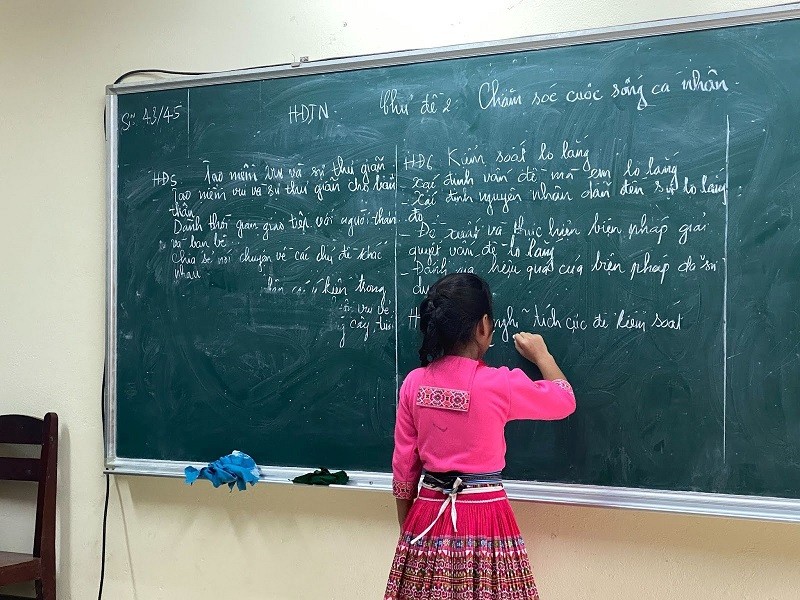 Sĩ: 43/45
HĐTN Chủ đề 2 Chăm sóc cuộc sống cá nhân
HĐ5 Tạo niềm vui và sự thư giãn
Tạo niềm vui và sự thư giãn cho bản
thân
Dành thời gian giao tiếp với người thân
và bạn bè
Chia sẻ nói chuyện về các chủ đề khác
nhau
kiện trong
vui vẻ
cây,
HĐ6 Kiểm soát lo lắng
- Xác định vấn đề mà em lo lắng
- Xác định nguyên nhân dẫn đến sự lo lắng
đó
- Đề xuất và thực hiện biện pháp giải
quyết vấn đề lo lắng
- Đánh giá hiệu quả của biện pháp đã sử
nghĩ tích cực để kiểm soát